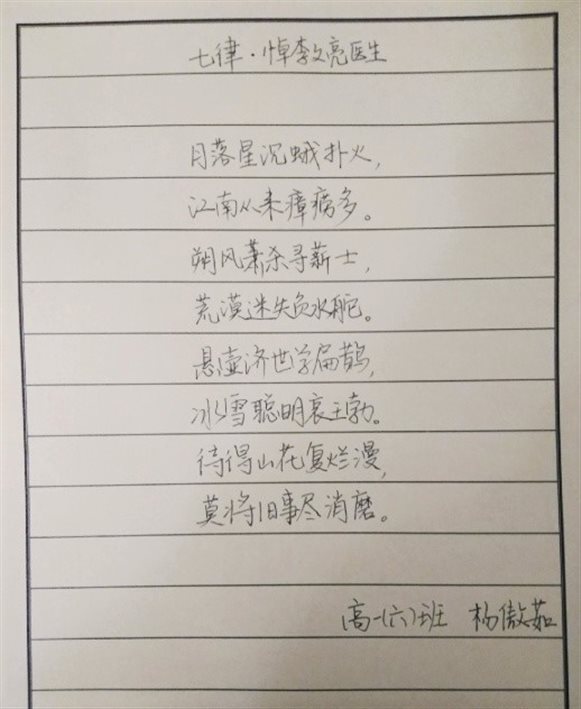 七律·悼李文亮医生
月落星沉蛾扑火，
江南从来瘴病多。
朔风萧杀寻薪士，
荒漠迷失负水驼。
悬壶济世学扁鹊，
冰雪聪明哀王勃。
待得山花复烂漫，
莫将旧事尽消磨。
高一(六)班 杨傲茹